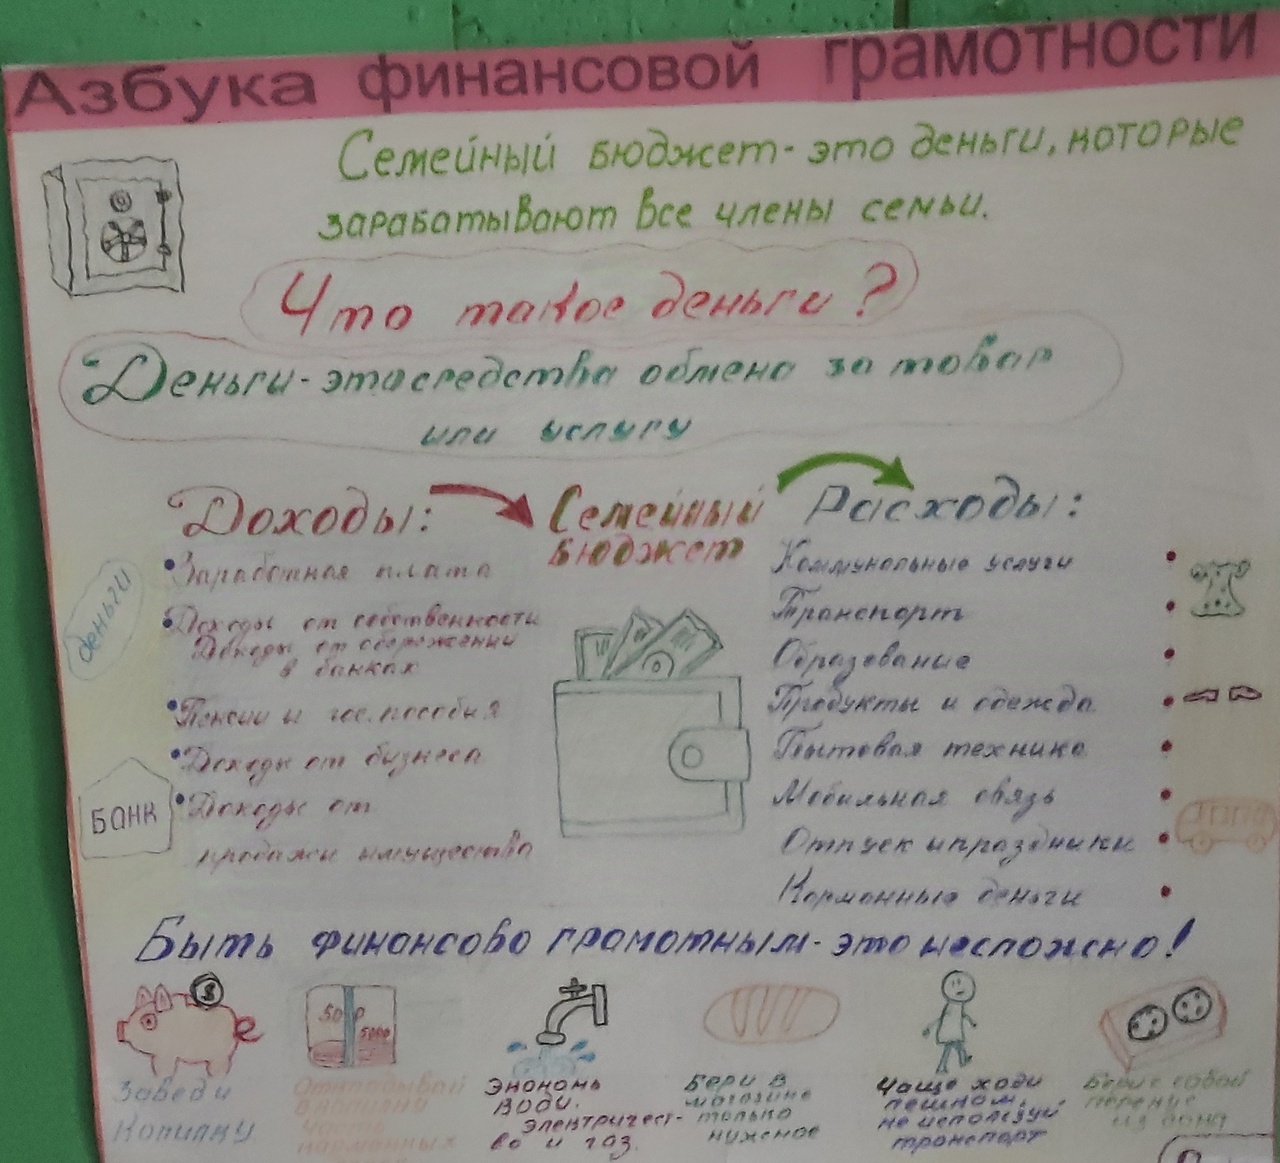 Азбука финансовой грамотности
Семейный бюджет - это деньги, которые
зарабатывают все члены семьи.
Что такое деньги?
Деньги - это средства обмена за товар
или услугу
Доходы:
Заработная плата
Доходы от собственности
Доходы от сбережений
в банках
Пенсии и гос. пособия
Доходы от бизнеса
Доходы от
продажи имущества
деньги
БАНК
Семейный
бюджет
Расходы:
Коммунальные услуги
Транспорт
Образование
Продукты и одежда
Бытовая техника
Мобильная связь
Отпуск и праздники
Карманные деньги
Быть финансово грамотным - это несложно!
$
50 р
5000
Заведи
Копилку
Откладывай
в копилку
часть
карманных
Экономь
воду.
Электричест-
во и газ.
Бери в
магазине
только
нужное
Чаще ходи
пешком,
не используй
транспорт
Бери с собой
перекус
из дома